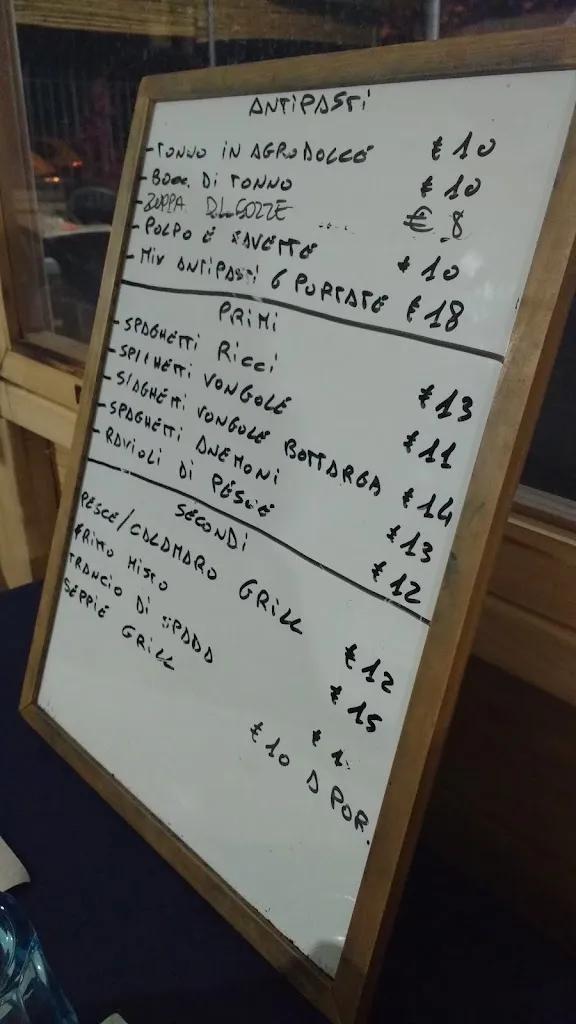 ANTIPASTI
- TONNO IN AGRODOLCE € 10
- BOCC. DI TONNO € 10
- ZUPPA DI COZZE .... € 8
- POLPO E FAVETTE € 10
- MIX ANTIPASTI 6 PORTATE € 18
PRIMI
- SPAGHETTI RICCI € 13
- SPAGHETTI VONGOLE € 11
- SPAGHETTI VONGOLE BOTTARGA € 14
- SPAGHETTI ANEMONI € 13
- RAVIOLI DI PESCE € 12
SECONDI
PESCE/CALAMARO GRILL € 12
FRITTO MISTO € 15
TRANCIO DI SPADA € 1
SEPPIE GRILL € 10 A POR.